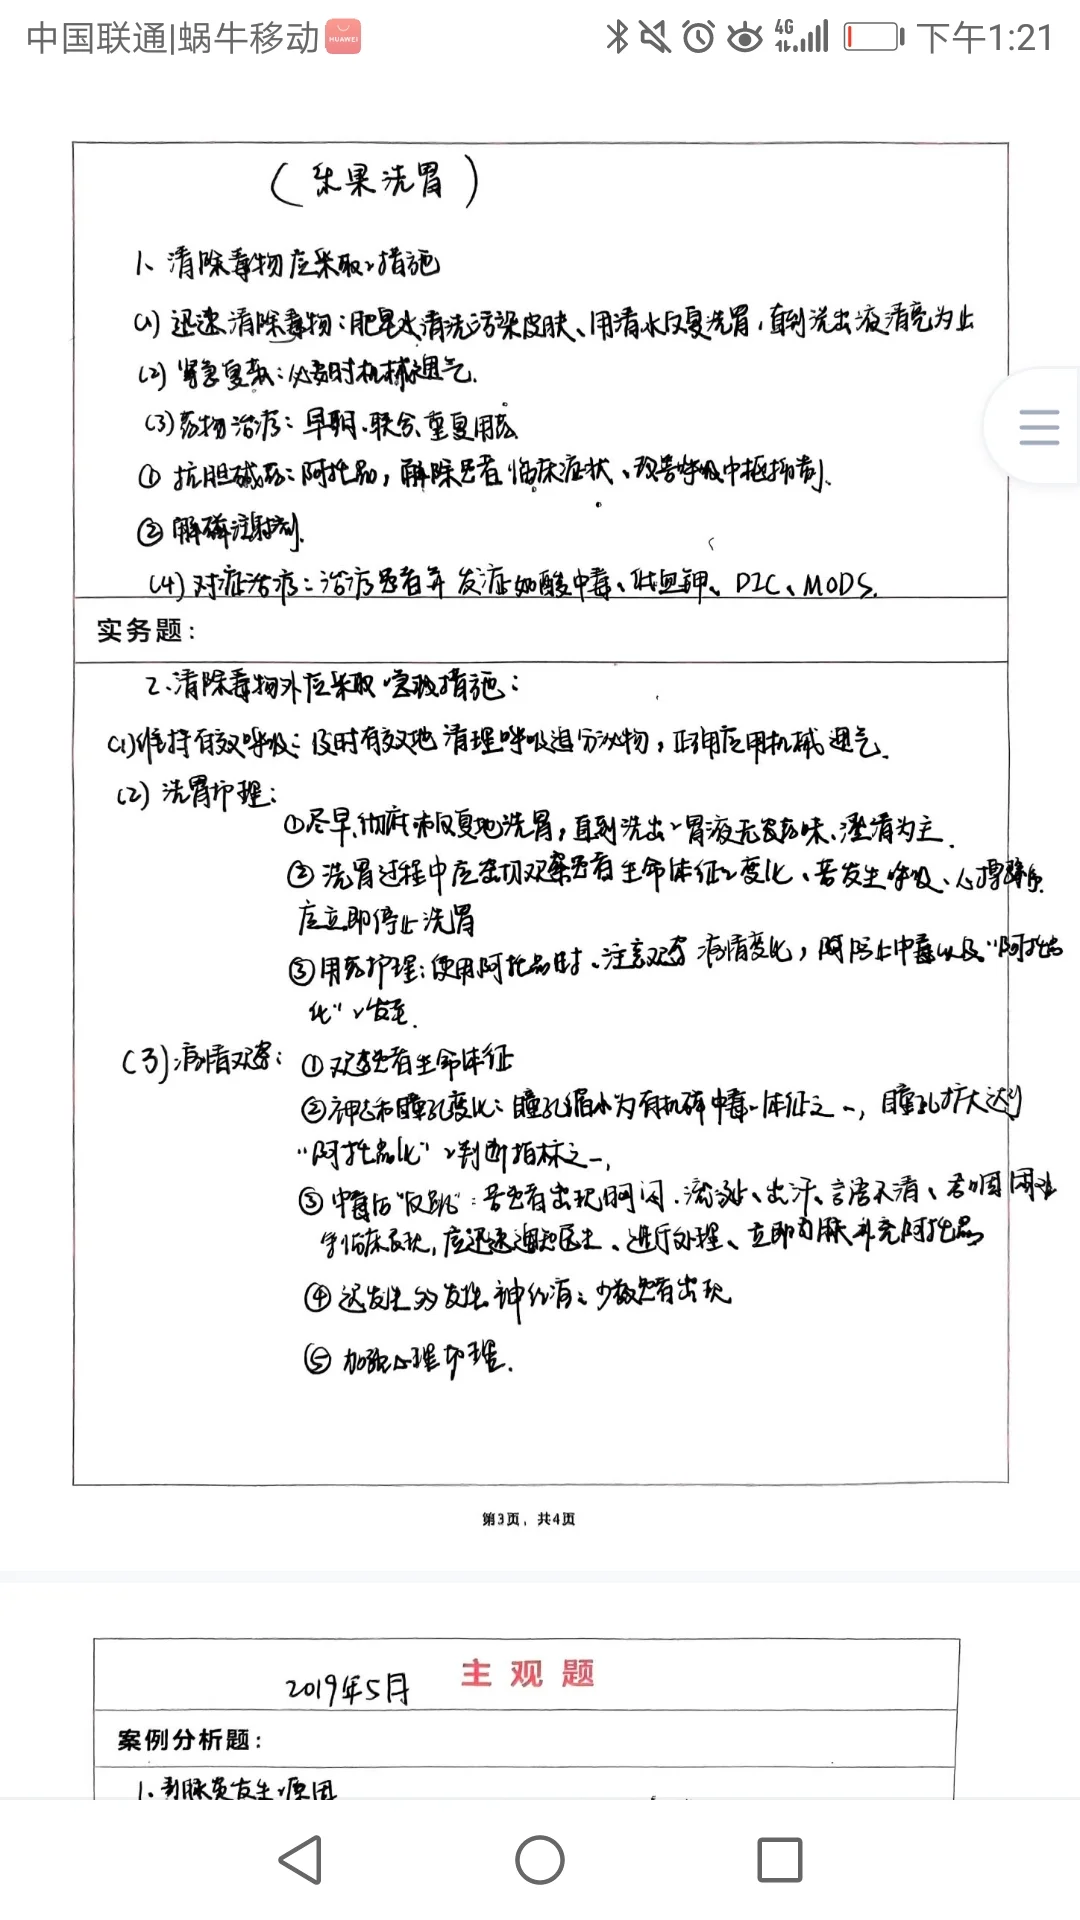 中国联通|蜗牛移动
HUAWEI
4G
下午1:21
(乐果洗胃)
1、清除毒物应采取措施
(1) 迅速清除毒物:肥皂水清洗污染皮肤、用清水反复洗胃,直到洗出液清亮为止
(2) 紧急复苏:必要时机械通气.
(3) 药物治疗:早期、联合、重复用药
① 抗胆碱药:阿托品,解除患者临床症状、改善呼吸中枢抑制.
② 解磷注射剂.
(4) 对症治疗:治疗患者并发症如酸中毒、低血钾、DIC、MODS.
实务题:
2、清除毒物外应采取急救措施:
(1)维持有效呼吸:及时有效地清理呼吸道分泌物,正确应用机械通气.
(2) 洗胃护理:
①尽早、彻底和反复地洗胃,直到洗出胃液无农药味、澄清为主.
② 洗胃过程中应密切观察患者生命体征变化、若发生呼吸、心搏骤停
应立即停止洗胃
③ 用药护理:使用阿托品时、注意观察病情变化,阿托品中毒以及"阿托品
化"发生.
(3) 病情观察:
① 观察患者生命体征
② 神志和瞳孔变化:瞳孔缩小为有机磷中毒体征之一,瞳孔扩大达到
"阿托品化"判断指标之一,
③ 中毒后"反跳":若患者出现胸闷、流涎、出汗、言语不清、吞咽困难
等临床表现,应迅速通知医生、进行处理、立即静脉补充阿托品
④ 迟发性多发性神经病:少数患者出现
⑤ 加强心理护理.
第3页,共4页
2019年5月
主观题
案例分析题: